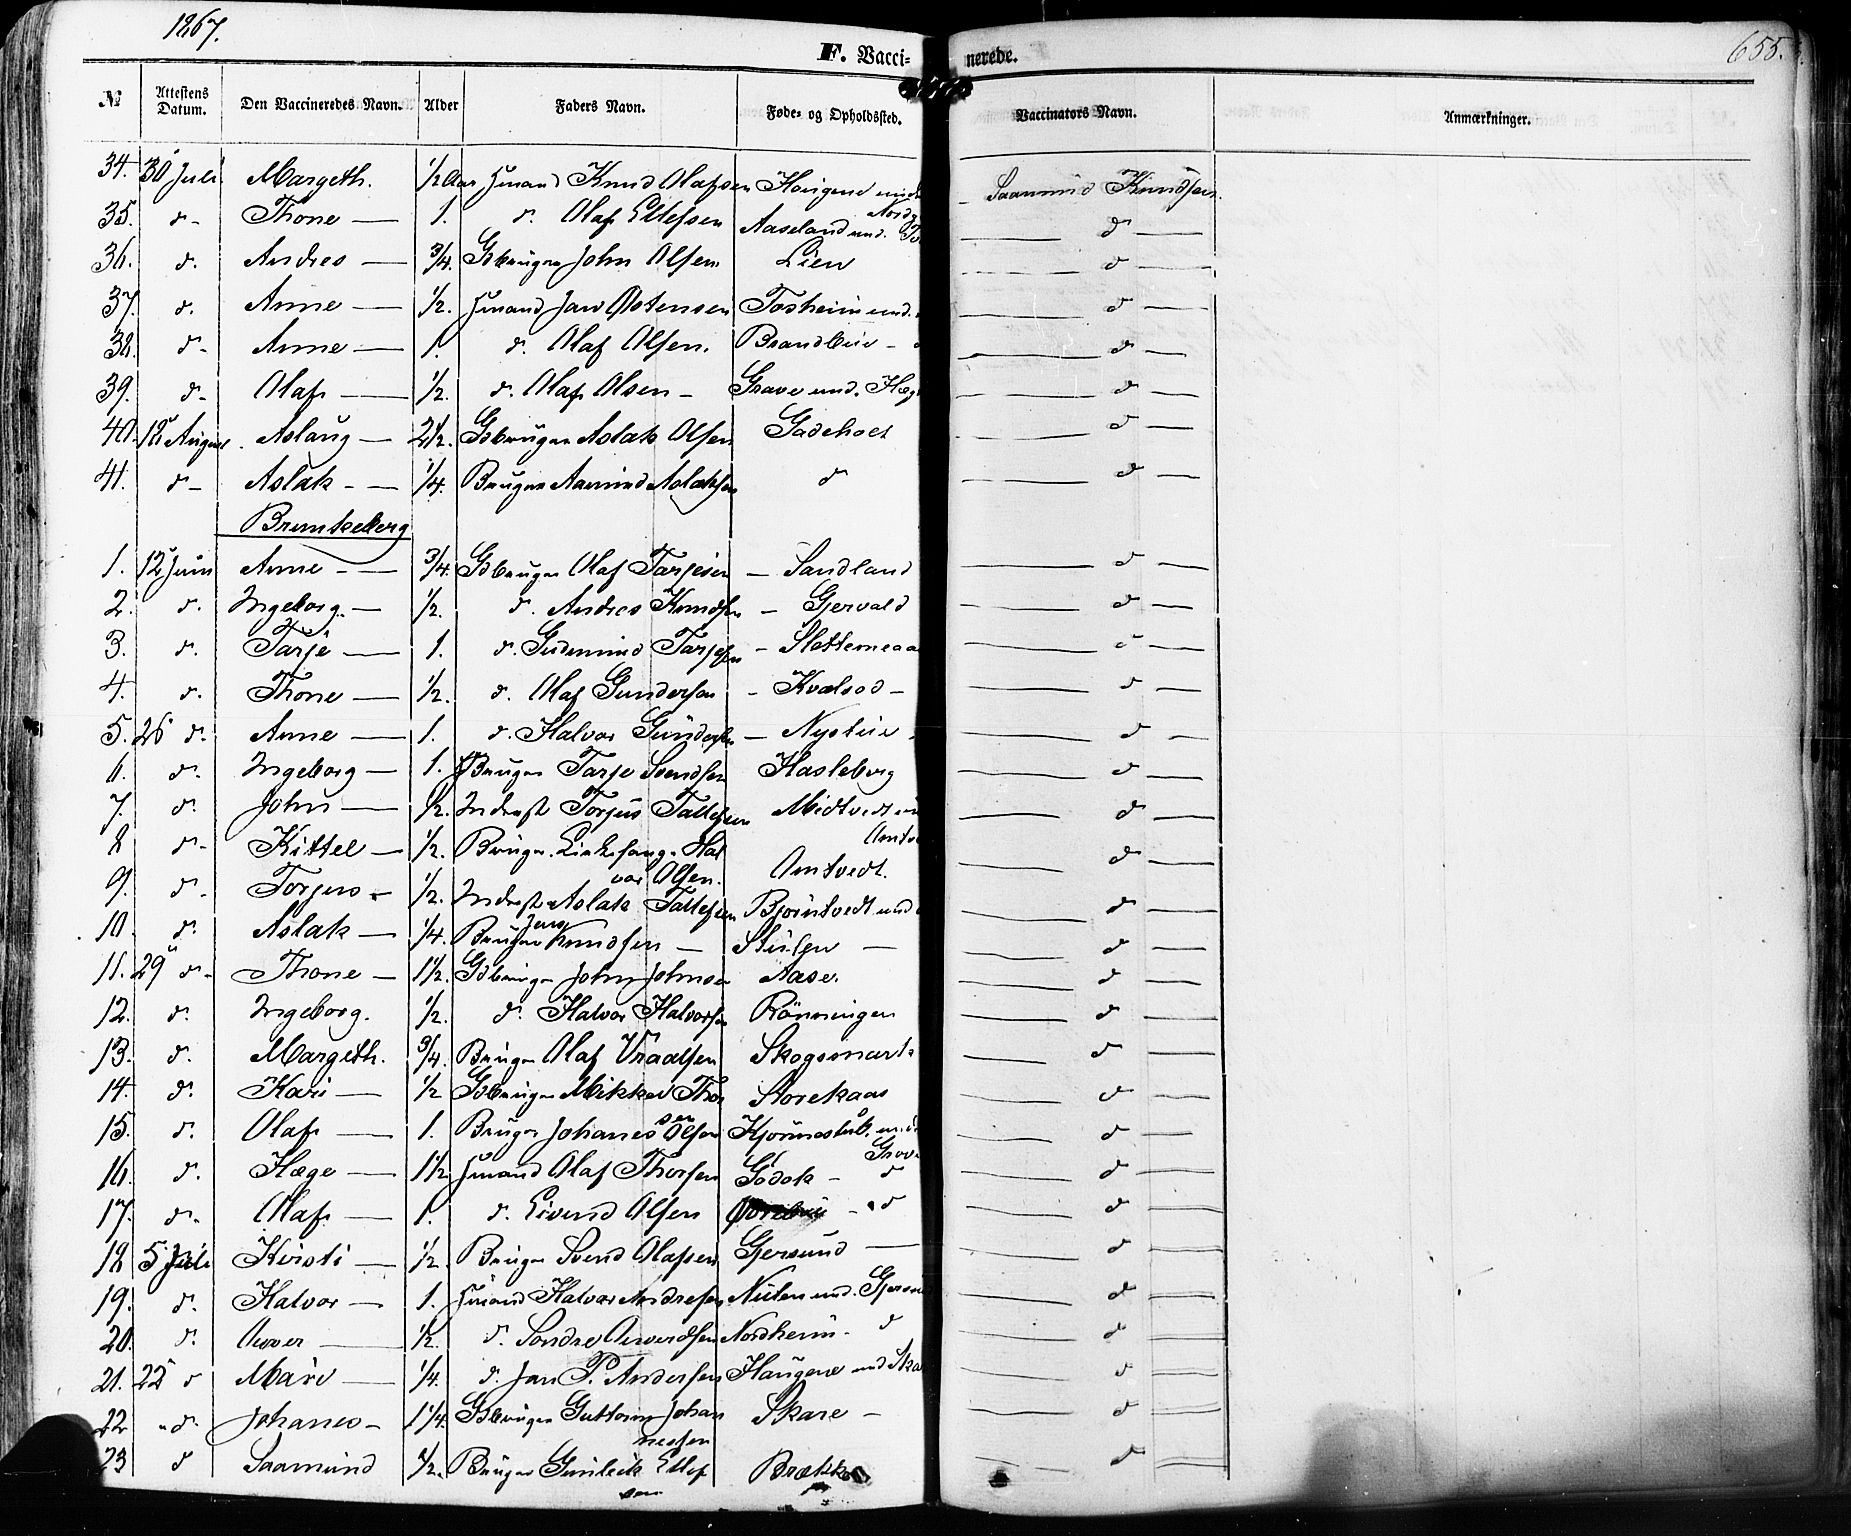 1867.
F. Vacci-
nerede.
655.
№ Attestens Datum. Den Vaccineredes Navn. Alder Faders Navn. Føde- og Opholdssted. Vaccinators Navn. Anmærkninger.
34. 30 Juli Margeth. 1/2 Aar Hmand Knud Olafsen Haugene Saamund Knudsen
35. d- Thone — 1. d. Olaf Ellefsen Aaseland und. d
36. d. Andres — 3/4. Gbruger John Olsen Lien d
37. d. Anne — 1/2. Hmand Jan Østensen Tosheim und. d
38. d- Anne — 1. d. Olaf Olsen. d
39. d- Olaf — 1/2. d. Olaf Olsen - Grave und. d
40. 18 August Aslaug — 2 1/2. Gbruger Aslak Olsen Gadeholt d
41. d- Aslak - — 1/4. Bruger Aamund Aslaksen d d
Brunkeberg
1. 12 Juni Anne - — 3/4. Gbruger Olaf Tarjesen - Sandland d
2. d. Ingeborg. — 1/2. d. Andres Knudsen - Gjervald d
3. d. Tarje — 1. d. Gudmund Tarjesen - d
4. d. Thone — 1/2. d. Olaf Gundersen - d
5. 26 d. Anne — 1. d. Halvor Gundersen - Nystue d
6. d. Ingeborg — 1. Bruger Tarje Svendsen Hasleberg d
7. d. John — 1/2. Inderst Torjus Tallefsen Midtvedt d
8 d- Kittel — 1/2. Bruger. Hal
vor Olsen. Amtvedt. d
9. d- Torjus - 1/2. Inderst Aslak Tallefsen Bjørntvedt und d
10. d. Aslak — 1/4. Bruger Jens Knudsen — — d
11. 29 d- Thone — 1 1/2. Gbruger John Johnsen Aase. d
12. d. Ingeborg. 1/2. d. Halvor Halvorsen Rønningen d
13. d. Margeth. 3/4. Bruger Olaf Vraalsen Skogsmark d
14. d. Kari — 1/2 Gbruger Mikkel Thor
sen Storekaas d
15. d. Olaf — 1. Bruger Johanes Olsen d
16. d. Hæge — 1 1/2 Hmand Olaf Thorsen Godok - d d
17. d. Olaf — 1. d. Eivend Olsen - d d
18 5 Juli Kirsti — 1/2. Bruger Svend Olafsen Gjersund — d
19. d. Halvor — 1. Hmand Halvor Andresen und. d
20. d. — 1/2. d. Sondre Nordheim - d d
21. 22 d Mari — 1/4. d. Jan P. Andersen Haugene und Ska d
22 - d. Johanes - 1 1/4. Gbruger Guttorm Johan
nesen Skare - d
23 d Saamund 1/2. Bruger Gunleik Ellef
sen Brække d